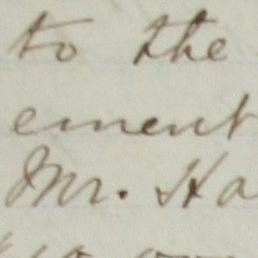 to the
ement
Mr. Ha